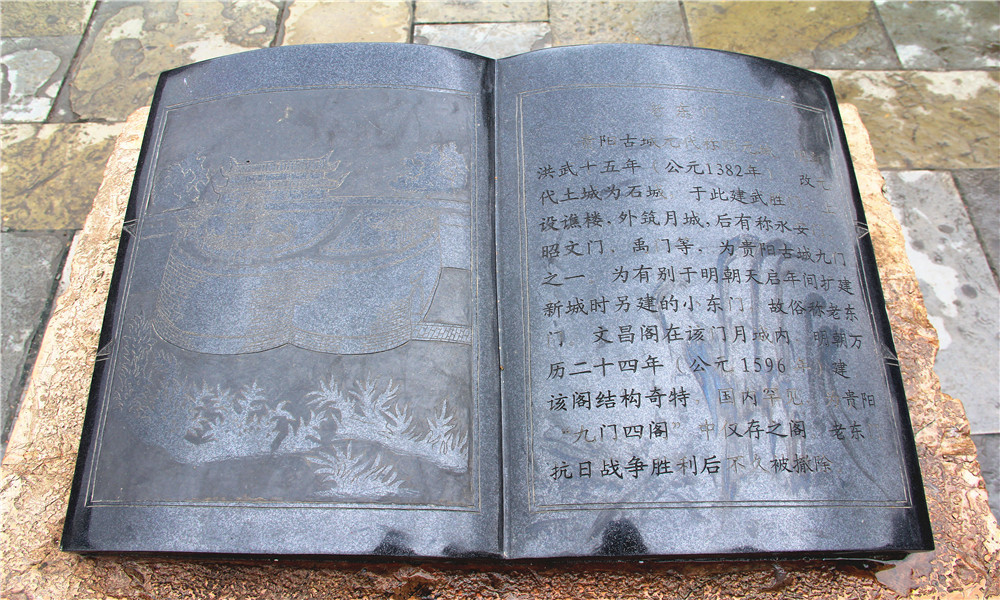 阳古城元代
洪武十五年(公元1382年 改
代土城为石城 于此建武胜
设谯楼,外筑月城,后有称永安
昭文门、禹门等,为贵阳古城九门
之一 为有别于明朝天启年间扩建
新城时另建的小东门 故俗称老东
门 文昌阁在该门月城内 明朝万
历二十四年(公元1596年)建
该阁结构奇特 国内罕见 为贵阳
“九门四阁”中仅存之阁 老东
抗日战争胜利后不久被撤除